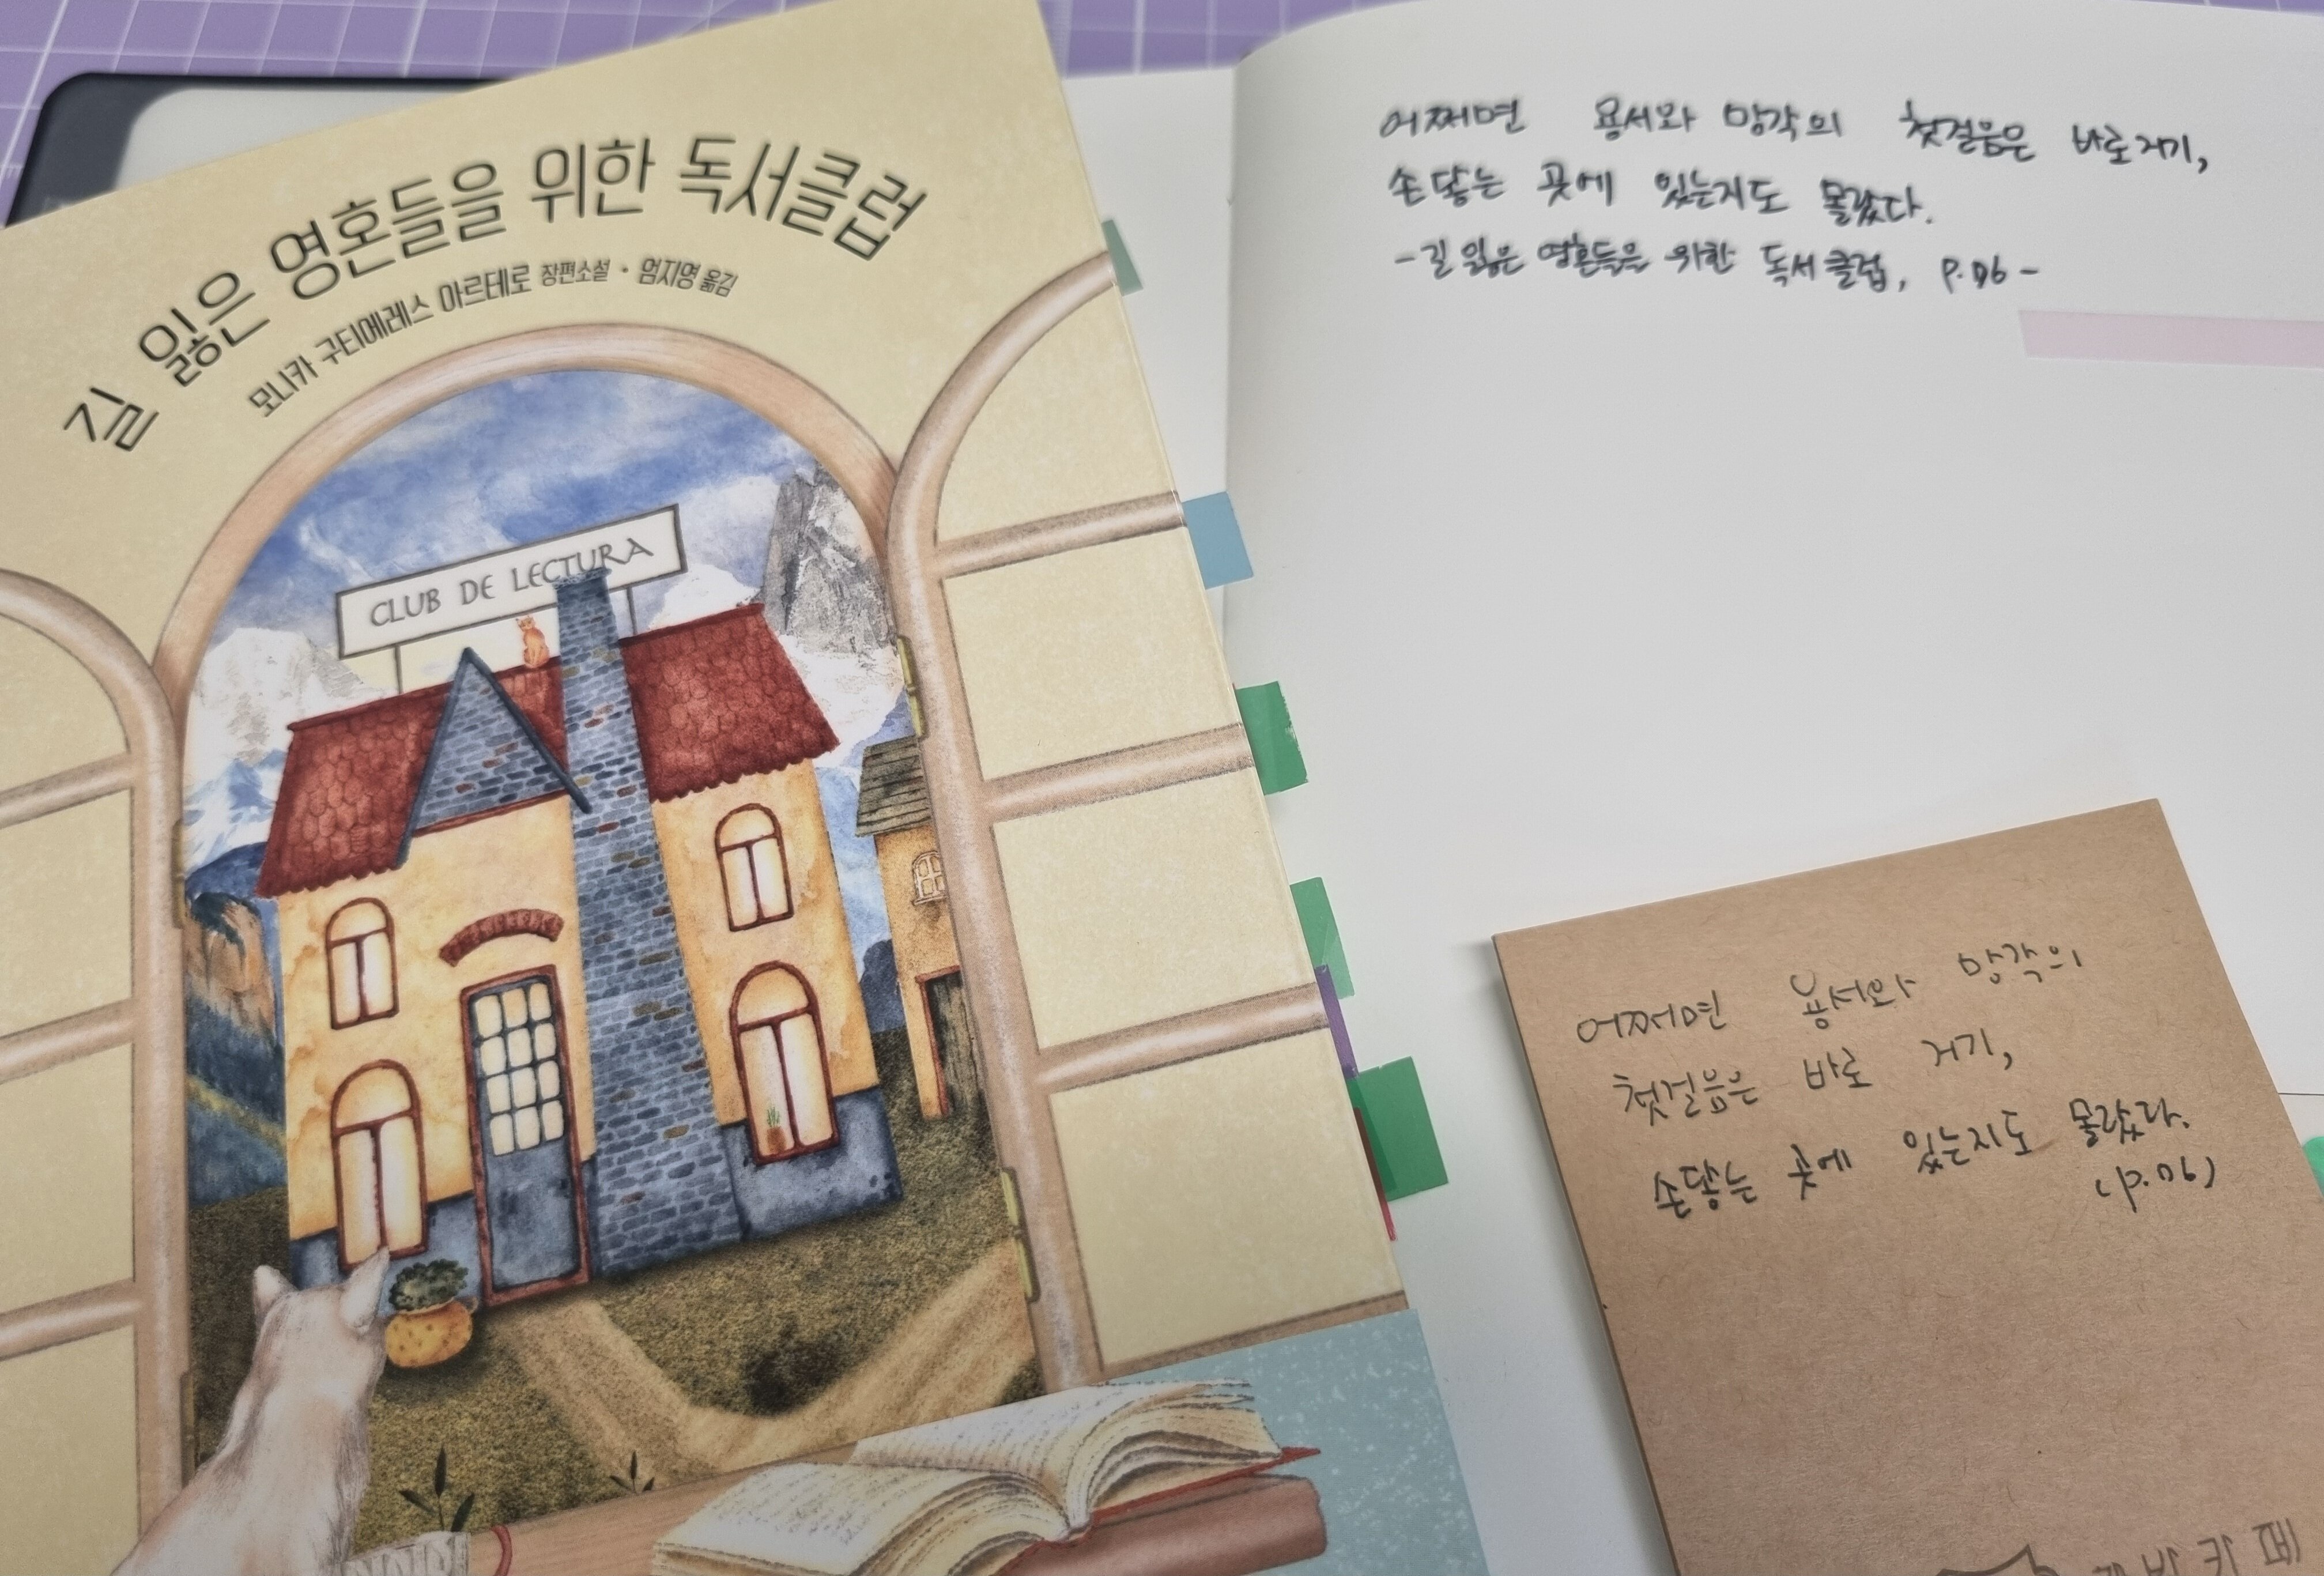 길 잃은 영혼들을 위한 독서클럽
모니카 구티에레스 아르테로 장편소설 · 엄지영 옮김
CLUB DE LECTURA
어쩌면 용서와 망각의 첫걸음은 바로 거기,
손 닿는 곳에 있는지도 몰랐다.
-길 잃은 영혼들을 위한 독서클럽, p.96-
어쩌면 용서와 망각의
첫걸음은 바로 거기,
손 닿는 곳에 있는지도 몰랐다.
(p.96)
카페